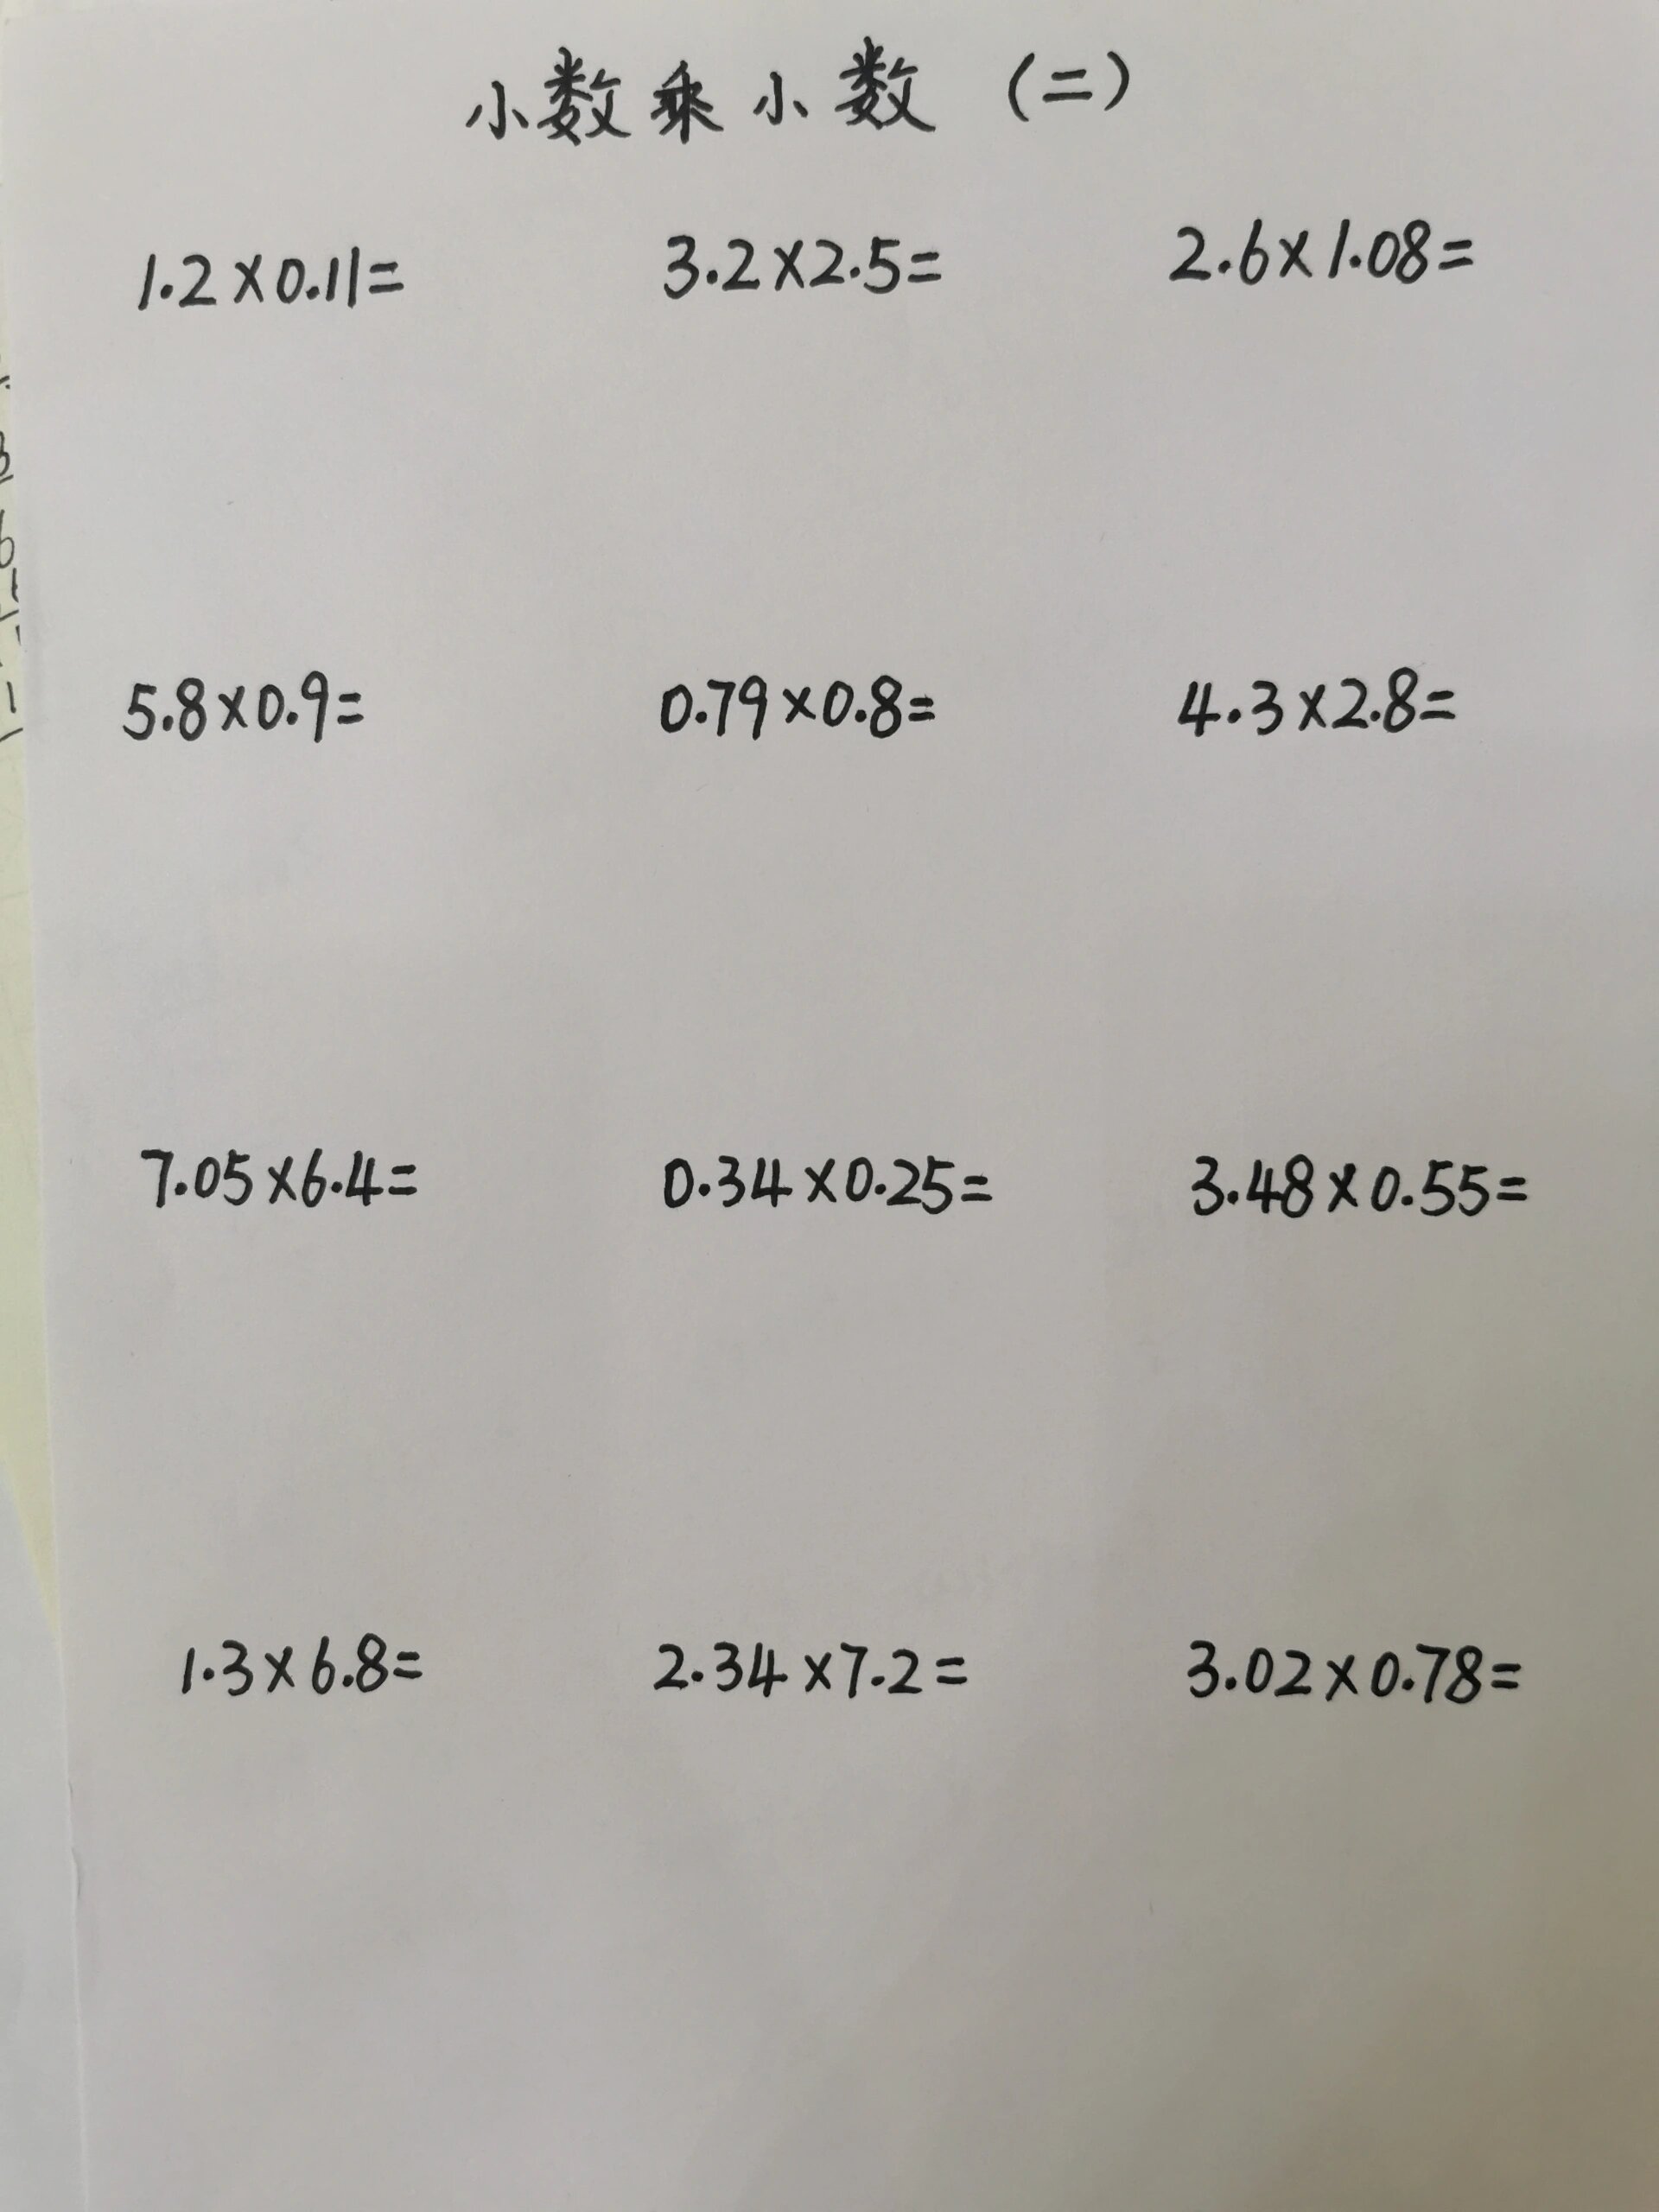 小数乘小数（二）
1.2×0.11= 3.2×2.5= 2.6×1.08=
5.8×0.9= 0.79×0.8= 4.3×2.8=
7.05×6.4= 0.34×0.25= 3.48×0.55=
1.3×6.8= 2.34×7.2= 3.02×0.78=